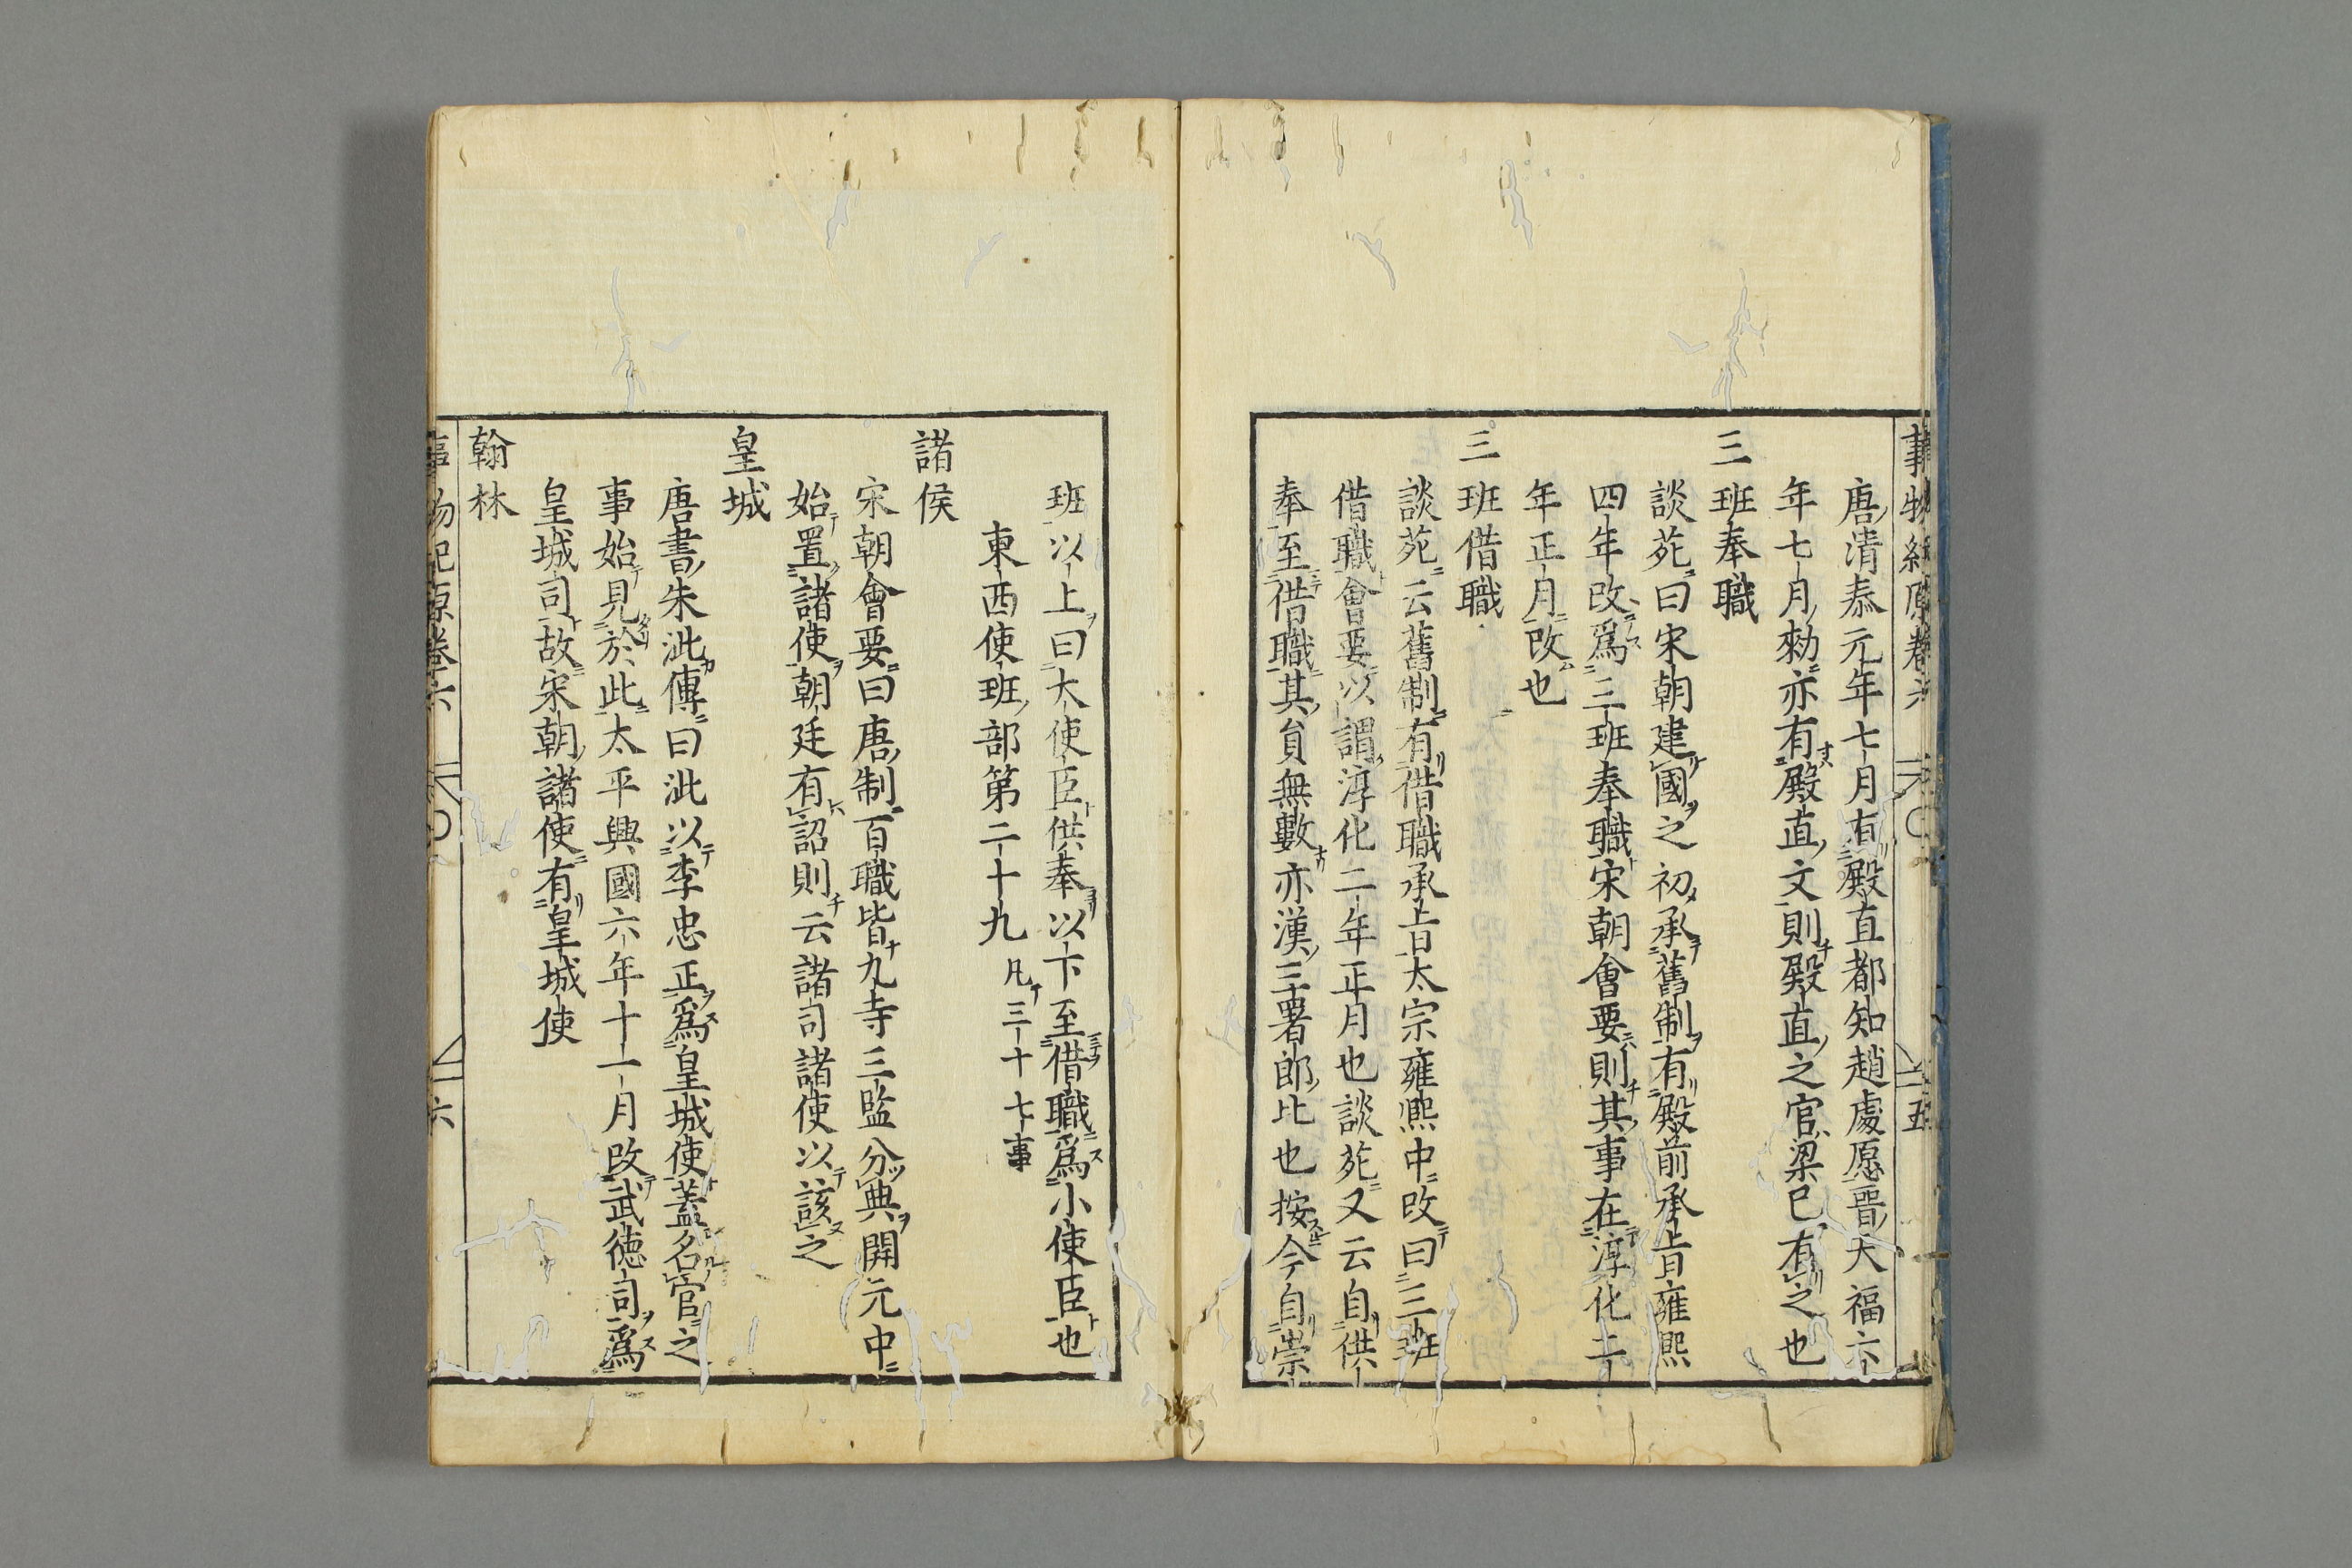 事物紀原卷六 五
唐清泰元年七月有殿直都知趙處愿晋天福六
年七月勑亦有殿直文則殿直之官梁已有之也
三班奉職
談苑曰宋朝建國之初承舊制有殿前承旨雍熙
四年改爲三班奉職宋朝會要則其事在淳化二
年正月改也
三班借職
談苑云舊制有借職承旨太宗雍熈中改曰三班
借職會要以謂淳化二年正月也談苑又云自供
奉至借職其貟無數亦漢三署郎比也按今自崇
班以上曰大使臣供奉以下至借職爲小使臣也
東西使班部第二十九 凡三十七事
諸侯
宋朝會要曰唐制百職皆九寺三監分典開元中
始置諸使朝廷有詔則云諸司諸使以該之
皇城
唐書朱泚傳曰泚以李忠正爲皇城使蓋名官之
事始見於此太平興國六年十一月改武德司爲
皇城司故宋朝諸使有皇城使
翰林
事物紀原卷六 六